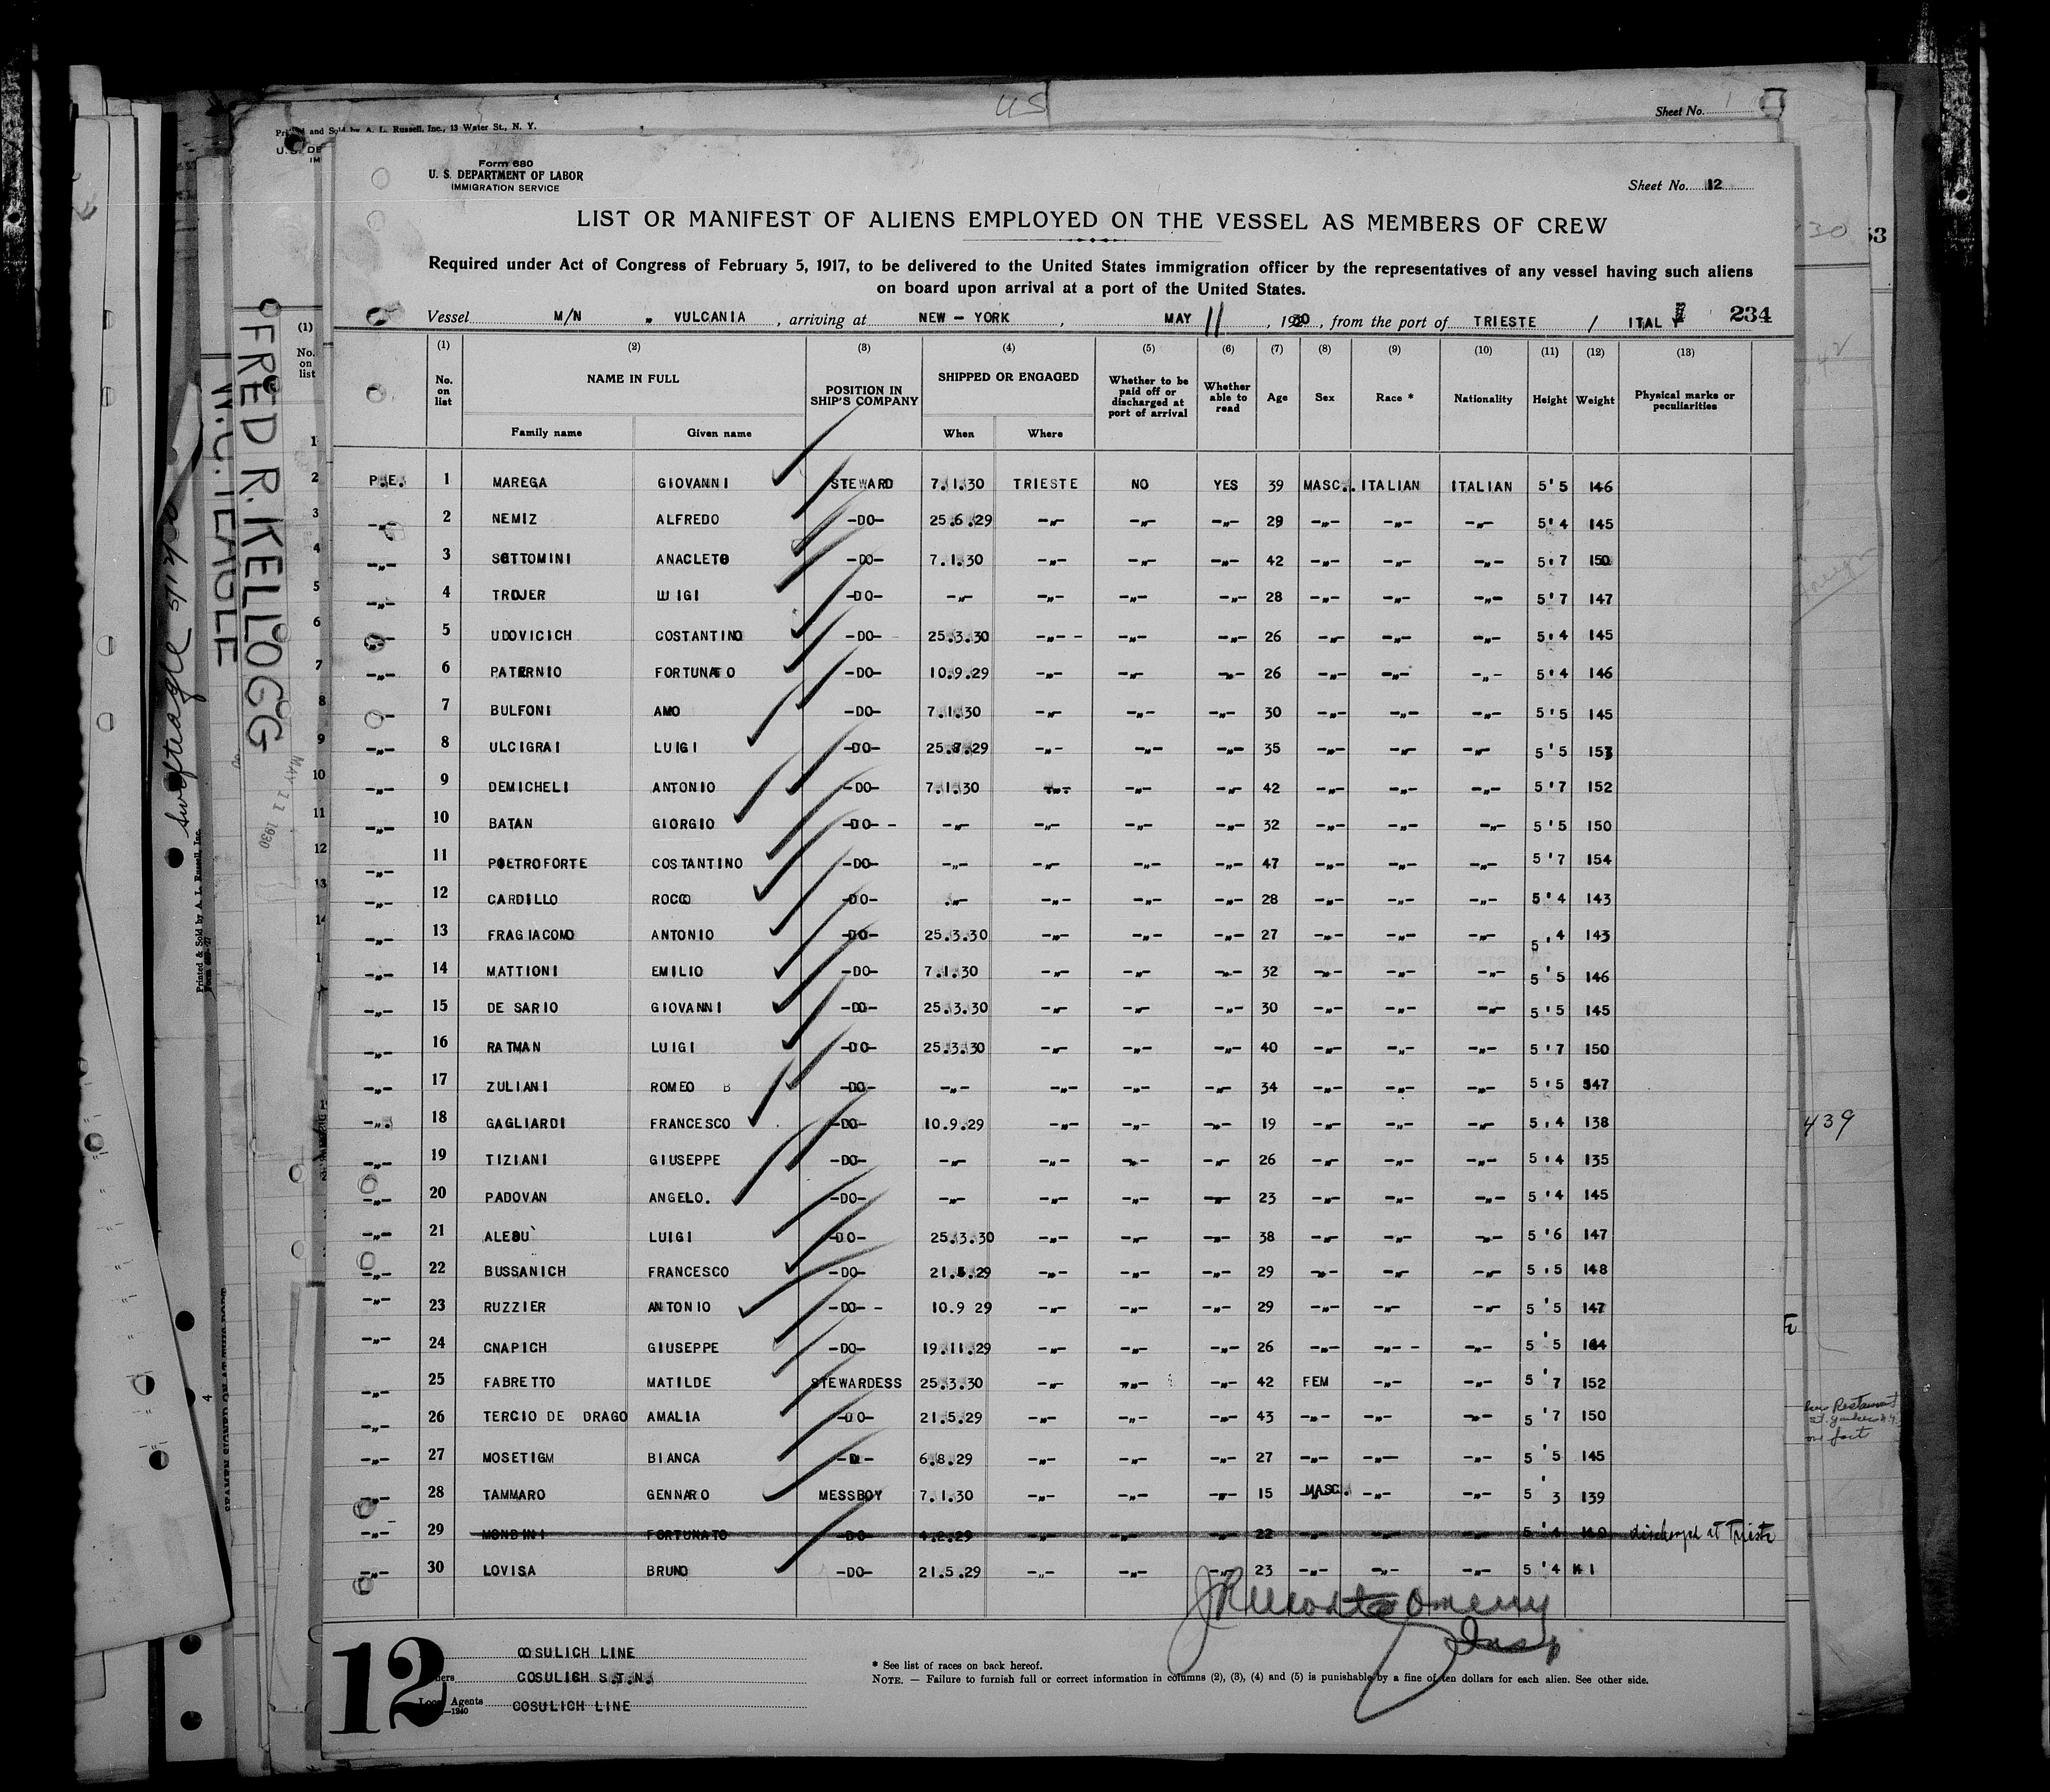 Printed and Sold by A. L. Russell, Inc., 13 Water St., N. Y.
US
Sheet No. 1
Form 680
U. S. DEPARTMENT OF LABOR
IMMIGRATION SERVICE
Sheet No. 12
LIST OR MANIFEST OF ALIENS EMPLOYED ON THE VESSEL AS MEMBERS OF CREW
Required under Act of Congress of February 5, 1917, to be delivered to the United States immigration officer by the representatives of any vessel having such aliens
on board upon arrival at a port of the United States.
Vessel M/N „ VULCANIA , arriving at NEW - YORK , MAY 11 , 1930 , from the port of TRIESTE / ITALY 234
(1) (2) (3) (4) (5) (6) (7) (8) (9) (10) (11) (12) (13)
No. on list NAME IN FULL POSITION IN SHIP'S COMPANY SHIPPED OR ENGAGED Whether to be paid off or discharged at port of arrival Whether able to read Age Sex Race * Nationality Height Weight Physical marks or peculiarities
Family name Given name When Where
P.E. 1 MAREGA GIOVANNI STEWARD 7.1.30 TRIESTE NO YES 39 MASC. ITALIAN ITALIAN 5'5 146
-„- 2 NEMIZ ALFREDO -DO- 25.6.29 -„- -„- -„- 29 -„- -„- -„- 5'4 145
-„- 3 SOTTOMINI ANACLETO -DO- 7.1.30 -„- -„- -„- 42 -„- -„- -„- 5'7 150
-„- 4 TROJER LUIGI -DO- -„- -„- -„- -„- 28 -„- -„- -„- 5'7 147
-„- 5 UDOVICICH COSTANTINO -DO- 25.3.30 -„- - -„- -„- 26 -„- -„- -„- 5'4 145
-„- 6 PATERNIO FORTUNATO -DO- 10.9.29 -„- -„- -„- 26 -„- -„- -„- 5'4 146
-„- 7 BULFONI AMO -DO- 7.1.30 -„- -„- -„- 30 -„- -„- -„- 5'5 145
-„- 8 ULCIGRAI LUIGI -DO- 25.8.29 -„- -„- -„- 35 -„- -„- -„- 5'5 153
-„- 9 DEMICHELI ANTONIO -DO- 7.1.30 -„- -„- -„- 42 -„- -„- -„- 5'7 152
-„- 10 BATAN GIORGIO -DO- - -„- -„- -„- -„- 32 -„- -„- -„- 5'5 150
-„- 11 PIETROFORTE COSTANTINO -DO- -„- -„- -„- -„- 47 -„- -„- -„- 5'7 154
-„- 12 CARDILLO ROCCO -DO- -„- -„- -„- -„- 28 -„- -„- -„- 5'4 143
-„- 13 FRAGIACOMO ANTONIO -DO- 25.3.30 -„- -„- -„- 27 -„- -„- -„- 5'4 143
-„- 14 MATTIONI EMILIO -DO- 7.1.30 -„- -„- -„- 32 -„- -„- -„- 5'5 146
-„- 15 DE SARIO GIOVANNI -DO- 25.3.30 -„- -„- -„- 30 -„- -„- -„- 5'5 145
-„- 16 RATMAN LUIGI -DO- 25.3.30 -„- -„- -„- 40 -„- -„- -„- 5'7 150
-„- 17 ZULIANI ROMEO B -DO- -„- -„- -„- -„- 34 -„- -„- -„- 5'5 147
-„- 18 GAGLIARDI FRANCESCO -DO- 10.9.29 -„- -„- -„- 19 -„- -„- -„- 5'4 138
-„- 19 TIZIANI GIUSEPPE -DO- -„- -„- -„- -„- 26 -„- -„- -„- 5'4 135
-„- 20 PADOVAN ANGELO. -DO- -„- -„- -„- -„- 23 -„- -„- -„- 5'4 145
-„- 21 LUIGI -DO- 25.3.30 -„- -„- -„- 38 -„- -„- -„- 5'6 147
-„- 22 BUSSANICH FRANCESCO -DO- 21.5.29 -„- -„- -„- 29 -„- -„- -„- 5'5 148
-„- 23 RUZZIER ANTONIO -DO- - 10.9 29 -„- -„- -„- 29 -„- -„- -„- 5'5 147
-„- 24 CNAPICH GIUSEPPE -DO- 19.11.29 -„- -„- -„- 26 -„- -„- - -„- 5'5 144
-„- 25 FABRETTO MATILDE STEWARDESS 25.3.30 -„- -„- -„- 42 FEM -„- -„- 5'7 152
-„- 26 TERCIO DE DRAGO AMALIA -DO- 21.5.29 -„- -„- -„- 43 -„- -„- -„- 5'7 150
-„- 27 MOSETIGM BIANCA -D- 6.8.29 -„- -„- -„- 27 -„- -„- -„- 5'5 145
-„- 28 TAMMARO GENNARO MESSBOY 7.1.30 -„- -„- -„- 15 MASC. -„- -„- 5'3 139
-„- 29 MONDINI FORTUNATO -DO- 4.2.29 -„- -„- -„- 22 -„- -„- -„- 5'4 140 discharged at Trieste
-„- 30 LOVISA BRUNO -DO- 21.5.29 -„- -„- -„- 23 -„- -„- -„- 5'4 141
JR Montgomery
Insp
12
COSULICH LINE
COSULICH S.T.N.
Local Agents COSULICH LINE
* See list of races on back hereof.
NOTE. — Failure to furnish full or correct information in columns (2), (3), (4) and (5) is punishable by a fine of ten dollars for each alien. See other side.
FRED R. KELLOGG
W.C. TEAGLE
MAY 11 1930
Swifteagle 5/12/30
Printed & Sold by A. L. Russell, Inc.
439
30
53
42